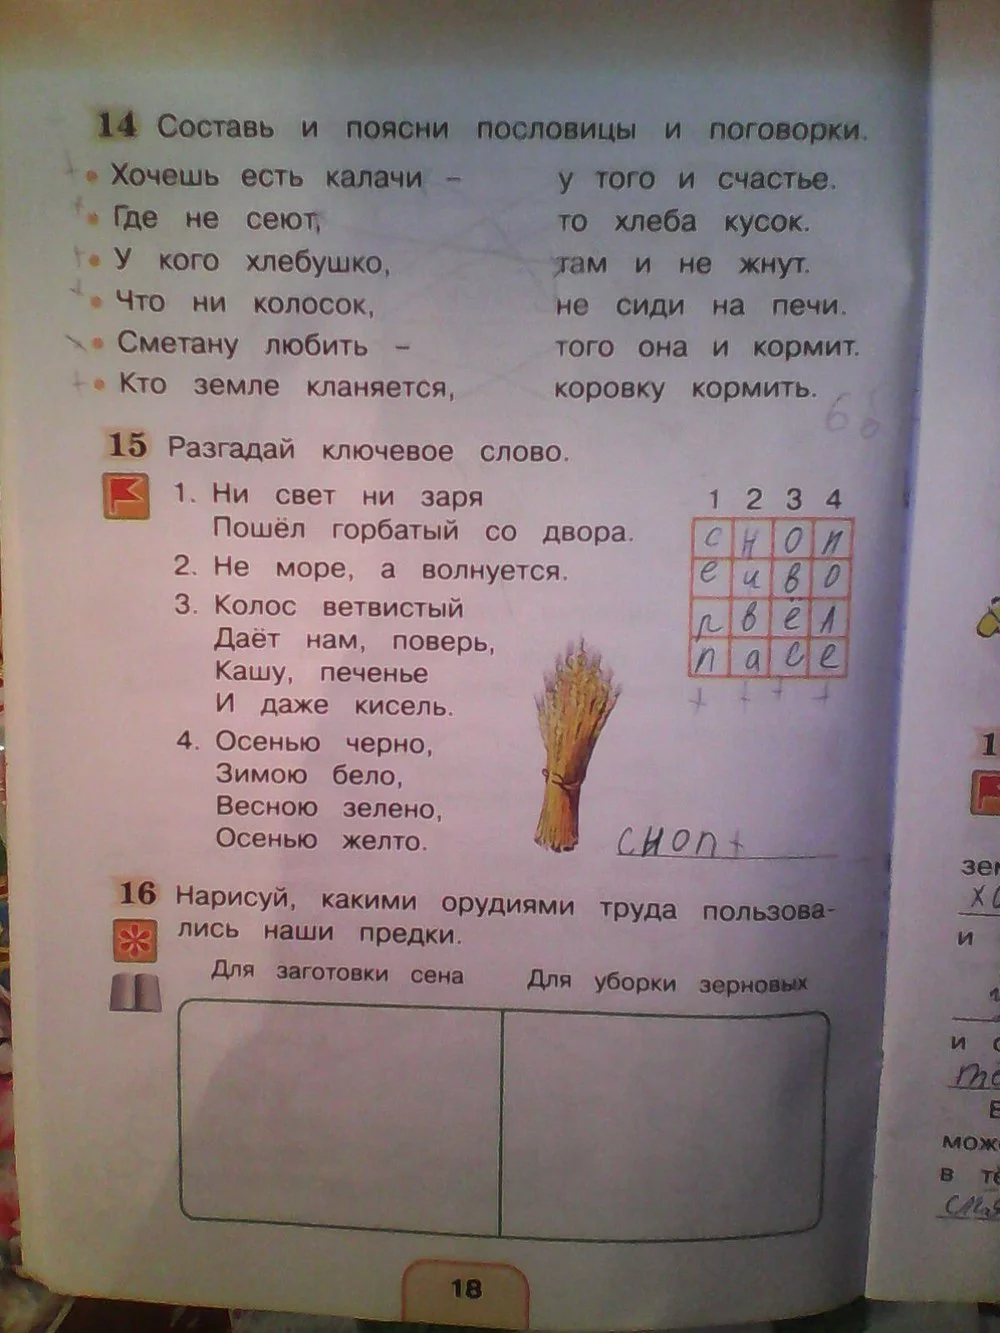 14 Составь и поясни пословицы и поговорки.
• Хочешь есть калачи – у того и счастье.
• Где не сеют, то хлеба кусок.
• У кого хлебушко, там и не жнут.
• Что ни колосок, не сиди на печи.
• Сметану любить – того она и кормит.
• Кто земле кланяется, коровку кормить.
15 Разгадай ключевое слово.
1. Ни свет ни заря
Пошёл горбатый со двора.
2. Не море, а волнуется.
3. Колос ветвистый
Даёт нам, поверь,
Кашу, печенье
И даже кисель.
4. Осенью черно,
Зимою бело,
Весною зелено,
Осенью желто.
1 2 3 4
с н о п
е и в о
р в ё л
п а с е
+ + + +
сноп +
16 Нарисуй, какими орудиями труда пользова-
лись наши предки.
Для заготовки сена Для уборки зерновых
18
1
и
и
мож
в